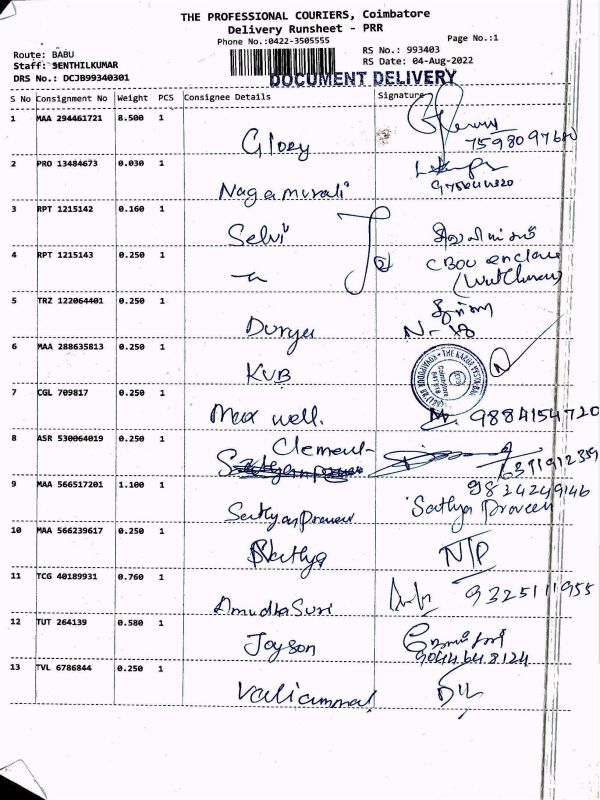 THE PROFESSIONAL COURIERS, Coimbatore
Delivery Runsheet - PRR
Phone No.:0422-3505555
Page No.:1
Route: BABU
RS No.: 993403
Staff: SENTHILKUMAR
RS Date: 04-Aug-2022
DRS No.: DCJB99340301
DOCUMENT DELIVERY
S No Consignment No Weight PCS Consignee Details Signature
1 MAA 294461721 8.500 1
Glory
2 PRO 13484673 0.030 1
Nagamurali
3 RPT 1215142 0.160 1
Selvi
4 RPT 1215143 0.250 1
CBOU enclave
5 TRZ 122064401 0.250 1
Durga
6 MAA 288635813 0.250 1
KVB
7 CGL 709817 0.250 1
Max well. 9884154720
8 ASR 530064019 0.250 1
Clement
9 MAA 566517201 1.100 1
9834249146
Sathyapraveen Sathya Praveen
10 MAA 566239617 0.250 1
Sathya N/P
11 TCG 40189931 0.760 1
Amudha Suri 9325111955
12 TUT 264139 0.580 1
Joyson
9044648124
13 TVL 6786844 0.250 1
Valiammal D/L